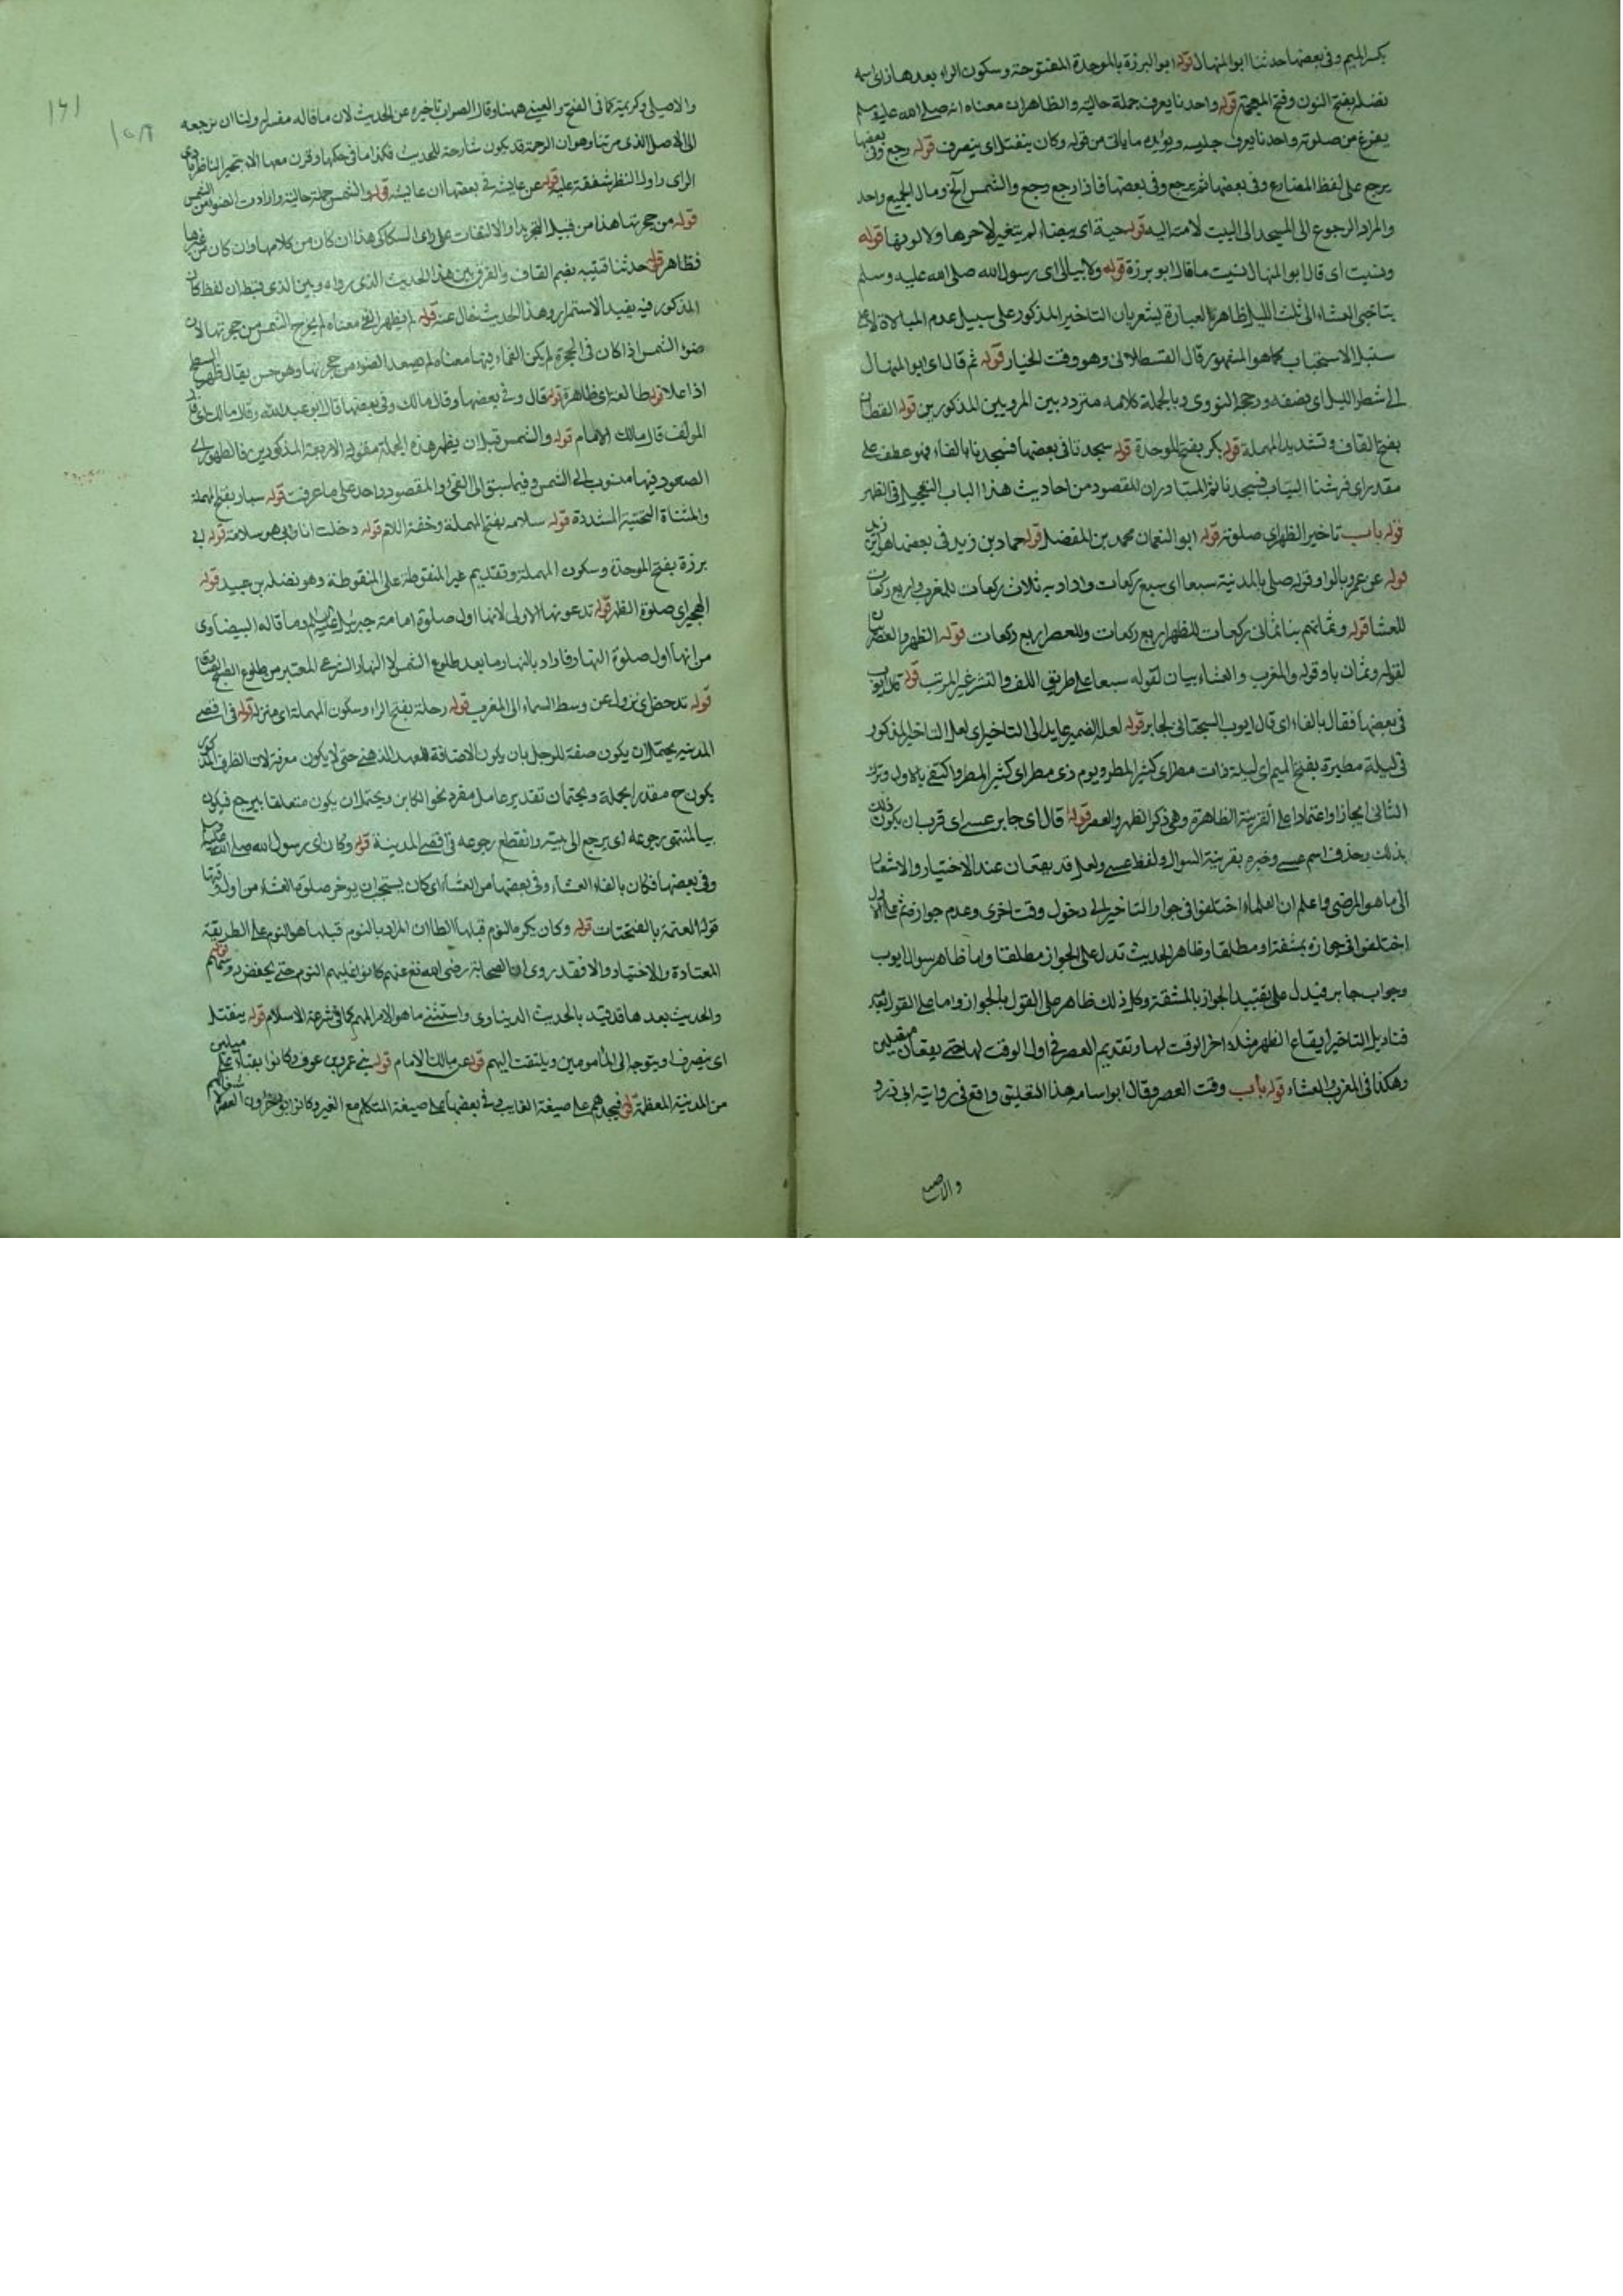 بكسر الميم وفى بعضها حدثنا ابو المنهال قوله ابو البرزة بالموحدة المفتوحة وسكون الراء بعدها زاى اسمه
نضله بفتح النون وفتح المعجمة قوله واحدنا يعرف جملة حالية والظاهر ان معناه انه صلى الله عليه وسلم
يفرغ من صلوته واحدنا يعرف جليسه ويؤيده ما ياتى من قوله وكان ينفتل اى ينصرف قوله رجع وفى بعضها
يرجع على لفظ المضارع وفى بعضها ثم يرجع وفى بعضها فاذا رجع رجع والشمس الخ ومال الجميع واحد
والمراد الرجوع الى المسجد الى البيت لا منه اليه قوله حية اى بيضاء لم يتغير لا حرها ولا لونها قوله
ونسيت اى قال ابو المنهال نسيت ما قال ابو برزة قوله ولا يبالى اى رسول الله صلى الله عليه وسلم
بتاخير العشاء الى ثلث الليل ظاهر العبارة يشعر بان التاخير المذكور على سبيل عدم المبالاة لا على
سبيل الاستحباب كما هو المشهور قال القسطلانى وهو وقت الخيار قوله ثم قال اى ابو المنهال
الى شطر الليل اى نصفه ورجحه النووى وبالجملة كلامه متردد بين المرويين المذكورين قوله القطان
بفتح القاف وتشديد المهملة قوله بكر بفتح الموحدة قوله سجدنا فى بعضها فسجدنا بالفاء فهو عطف على
مقدر اى فرشنا الثياب فسجدنا ثم المتبادر ان المقصود من احاديث هذا الباب التعجيل فى الظهر
قوله باب تاخير الظهر اى صلوته قوله ابو النعمان محمد بن الفضل قوله حماد بن زيد فى بعضها هو ابن زيد
قوله عن عمرو بالواو قوله صلى بالمدينة سبعا اى سبع ركعات واراد به ثلاث ركعات للمغرب واربع ركعات
للعشا قوله وثمانيا اى ثمانى ركعات للظهر اربع ركعات وللعصر اربع ركعات قوله الظهر والعصر بيان
لقوله وثمانيا وقوله والمغرب والعشاء بيان لقوله سبعا على طريق اللف والنشر غير المرتب قوله قال ايوب
فى بعضها فقال بالفاء اى قال ايوب السجتانى لجابر قوله لعله الضمير عايد الى التاخير اى لعل التاخير المذكور
فى ليلة مطيرة بفتح الميم اى ليلة ذات مطر اى كثير المطر ويوم ذى مطر اى كثير المطر واكتفى بالاول وترك
الثانى ايجازا واعتمادا على القرينة الظاهرة وهى ذكر الظهر والعصر قوله قال اى جابر عسى اى قرب ان يكون ذلك
بذلك وحذف اسم عسى وخبره بقرينة السوال ولفظ عسى ولعل قد يقعان عند الاختيار والاشعار
الى ما هو المرضى واعلم ان العلماء اختلفوا فى جواز التاخير الى دخول وقت اخرى وعدم جوازه ثم على الاول
اختلفوا فى جوازه بمشقة او مطلقا وظاهر الحديث تدل على الجواز مطلقا واما ظاهر سوال ايوب
وجواب جابر فيدل على تقييد الجواز بالمشقة وكل ذلك ظاهر على القول بالجواز واما على القول بعدمه
فتاويل التاخير ايقاع الظهر مثلا اخر الوقت لها وتقديم العصر فى اول الوقت لها حتى يقعان متصلين
وهكذا فى المغرب والعشاء قوله باب وقت العصر وقال ابو اسامه هذا التعليق واقع فى رواية ابى ذر و
والاصيلى
١٦١
١٥٨
والاصيلى وكريمة كما فى الفتح والعينى ههنا وقال الصواب تاخيره عن الحديث لان ما قاله مفسر له ولنا ان نرجعه
الى الاصل الذى مر بنا وهو ان الترجمة قد يكون شارحة للحديث فكذا ما فى حكمها وقرن معها الا يتحير الناظر بادى
الراى واول النظر شفقة عليه قوله عن عايشه فى بعضها ان عايشه قوله والشمس جملة حالية والمراد من الشمس الضوء
قوله من حجرتها هذا من قبيل التجريد او الالتفات على راى السكاكى هذا ان كان من كلامها وان كان من غيرها
فظاهر قوله حدثنا قتيبه بضم القاف والفرق بين هذا الحديث الذى رواه وبين الذى قبله ان لفظ كان
المذكور فيه يفيد الاستمرار وهذا الحديث خال عنه قوله لم يظهر الفئ معناه لم يخرج الشمس من حجرتها لان
ضوء الشمس اذا كان فى الحجرة لم يكن الفئ فيها معناه لم تصعد الضوء من حجرتها وهو حسن يقال ظهر السطح
اذا علا قوله طالعة اى ظاهرة قوله قال وفى بعضها وقال مالك وفى بعضها قال ابو عبد الله وقال مالك اى قال
المولف قال مالك الامام قوله والشمس قبل ان يظهر هذه الجملة مقولة الاربعة المذكورين فالظهور اى
الصعود فيها منسوب الى الشمس وفيما سبق الى الفئ والمقصود واحد على ما عرفت قوله سيار بفتح المهملة
والمثناة التحتية المشددة قوله سلامه بفتح المهملة وخفة اللام قوله دخلت انا وابى هو سلامة قوله ابى
برزة بفتح الموحدة وسكون المهملة وتقديم غير المنقوطة على المنقوطة وهو نضله بن عبيد قوله
الهجير اى صلوة الظهر قوله تدعونها الاولى لانها اول صلوة امامة جبرئيل عليه السلام وما قاله البيضاوى
من انها اول صلوة النهار فاراد بالنهار ما بعد طلوع الشمس لا النهار الشرعى المعتبر من طلوع الصبح الصادق
قوله تدحض اى نزول عن وسط السماء الى المغرب قوله رحله بفتح الراء وسكون المهملة اى منزله قوله فى اقصى
المدينه يحتمل ان يكون صفة للرحل بان يكون الاضافة للعهد الذهنى حتى لا يكون معرفة لان الظرف المذكور
يكون ح مقدرا بجملة ويحتمل ان تقدير عامل مفرد نحو الكاين ويحتمل ان يكون متعلقا بيرجع فيكون
بيا لمنتهى رجوعه اى يرجع الى بيته وانقطع رجوعه فى اقصى المدينة قوله وكان اى رسول الله صلى الله عليه وسلم
وفى بعضها فكان بالفاء العشاء وفى بعضها من العشاء اى كان يستحب ان يوخر صلوة العشاء من اول وقتها
قوله العتمة بالفتحات قوله وكان يكره النوم قبلها الظاهر ان المراد بالنوم قبلها هو النوم على الطريقة
المعتادة والاختيار والا فقد روى ان الصحابة رضى الله تع عنهم كانوا غلبهم النوم حتى يخفض رؤسهم قوله
والحديث بعدها قد قيد بالحديث الدنياوى واستثنى ما هو الامر المهم كما فى شرعة الاسلام قوله ينفتل
اى ينصرف او يتوجه الى المامومين ويلتفت اليهم قوله عن مالك الامام قوله بنى عمرو بن عوف وكانوا بقباء على ميلين
من المدينة المعظمة قوله فيجدهم على صيغة الغايب وفى بعضها على صيغة المتكلم مع الغير وكانوا يؤخرون العصر لاشغالهم